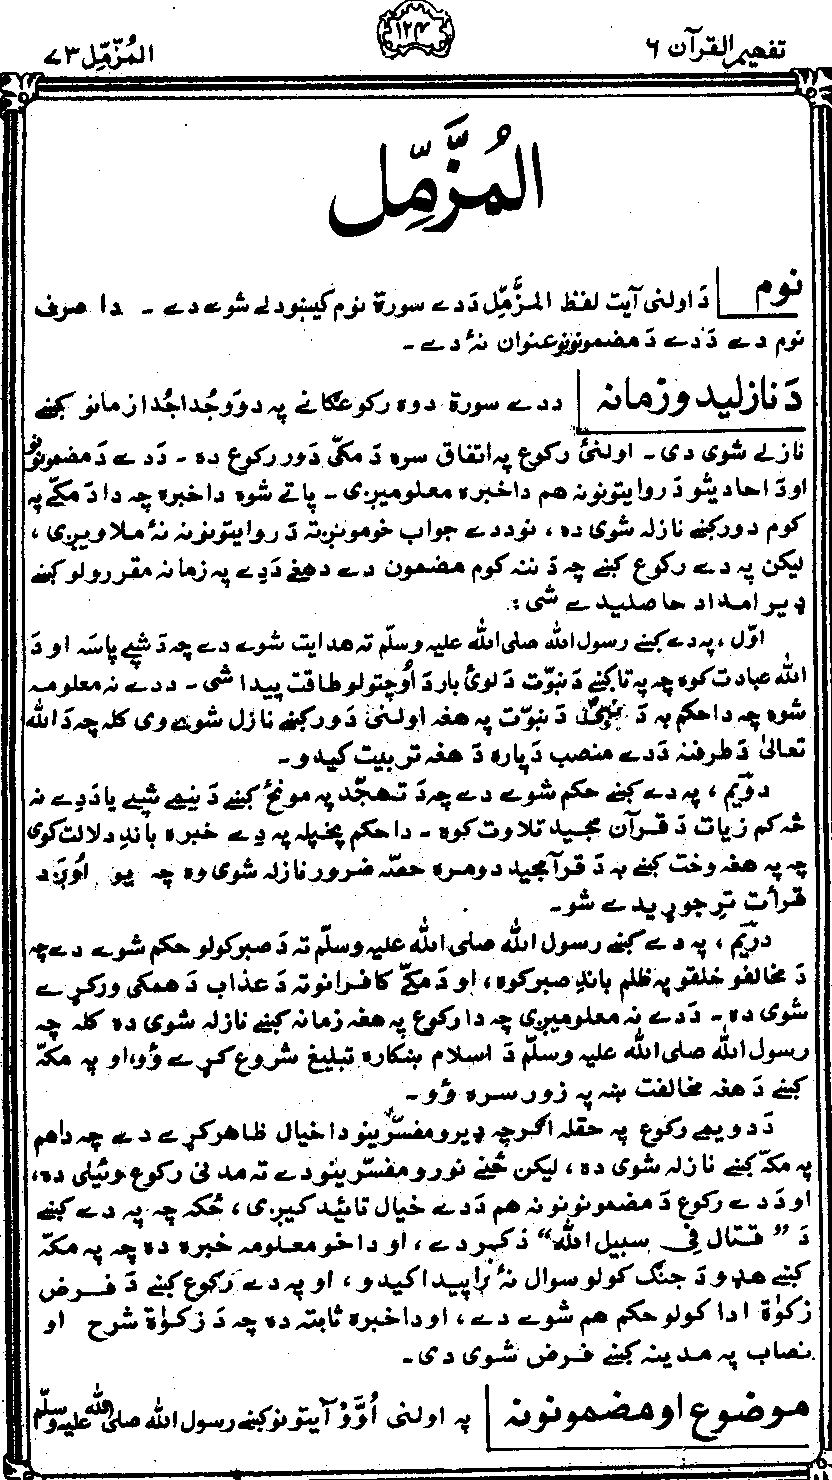 تفهیم القرآن ۶
۱۲۴
المُزّمِّل ۷۳
المُزَّمِّل
نوم
دَ اولنی آیت لفظ المزَّمِّل دَدے سورة نوم کیښودلے شوے دے ۔ دا صرف
نوم دے دَدے دَ مضمونونو عنوان نهٔ دے ۔
دَ نازلیدو زمانه
ددے سورة دوه رکوع گانے په دوَو جُدا جُدا زمانو کښے
نازلے شوی دی ۔ اولنیٔ رکوع په اتفاق سره دَ مکّی دَور رکوع ده ۔ دَدے دَ مضمونونو
اودَ احادیثو دَ روایتونونه هم داخبره معلومیږی ۔ پاتے شوه داخبره چه دا دَ مکّے په
کوم دَورکښے نازله شوی ده ، نوددے جواب خومونږته دَ روایتونونه نهٔ ملاویږی ،
لیکن په دے رکوع کښے چه دَ ننه کوم مضمون دے دهغے دَدِے په زمانه مقررولو کښے
ډیر امداد حاصلیدے شی :
اوّل ، په دے کښے رسول الله صلی الله علیه وسلّم ته هدایت شوے دے چه دَ شپے پاسَه او دَ
الله عبادت کوه چه په تا کښے دَ نبوّت دَ لویٔ بار دَ اُوچتولو طاقت پیدا شی ۔ ددے نه معلومه
شوه چه داحکم به دَ دَ نبوّت په هغه اولنیٔ دَورکښے نازل شوے وی کله چه دَ الله
تعالیٰ دَ طرفنه دَدے منصب دَپاره دَ هغه تربیت کیدو ۔
دوَیم ، په دے کښے حکم شوے دے چه دَ تهجّد په مونځ کښے دَ نیمے شپے یا دَدِے نه
څه کم زیات دَ قرآن مجید تلاوت کوه ۔ داحکم پخپله په دِے خبره باندِ دلالت کوی
چه په هغه وخت کښے به دَ قرآمجید دومره حصّه ضرور نازله شوی وه چه یو اُوږد
قرأت ترِ جوړیدے شو ۔
دریَم ، په دے کښے رسول الله صلی الله علیه وسلّم ته دَ صبر کولو حکم شوے دے چه
دَ مخالفو خلقو په ظلم باندِ صبر کوه ، او دَ مکّے کافرانوته دَ عذاب دَ همکی ورکړے
شوی ده ۔ دَدے نه معلومیږی چه دا رکوع په هغه زمانه کښے نازله شوی ده کله چه
رسول الله صلی الله علیه وسلّم دَ اسلام ښکاره تبلیغ شروع کړے وُو،او په مکّه
کښے دَ هغه مخالفت ښه په زور سره وُو ۔
دَ دویمے رکوع په حقله اگرچه ډیرو مفسّرینو داخیال ظاهر کړے دے چه دا هم
په مکّه کښے نازله شوی ده ، لیکن څنے نورو مفسّرینو دے ته مدنی رکوع وئیلی ده،
او دَدے رکوع دَ مضمونونونه هم دَدے خیال تائید کیږی ، ځکه چه په دے کښے
دَ ” قتال فی سبیل الله“ ذکر دے ، او دا خو معلومه خبره ده چه په مکّه
کښے هډو دَ جنګ کولو سوال نهٔ را پیدا کیدو ، او په دے رکوع کښے دَ فرض
زکوٰة ادا کولو حکم هم شوے دے ، اوداخبره ثابته ده چه دَ زکوٰة شرح او
نصاب په مدینه کښے فرض شوی دی ۔
موضوع او مضمونونه
په اولنی اُوَّوْ آیتونو کښے رسول الله صلی الله علیه وسلّم